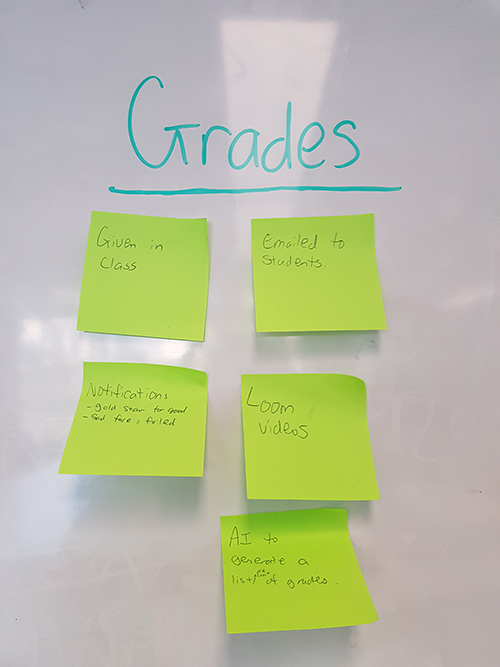 Grades
Given in
class
Emailed to
students.
Notifications
- gold star for good
- Sad face = failed
Loom
videos
AI to
generate a
list of grades.